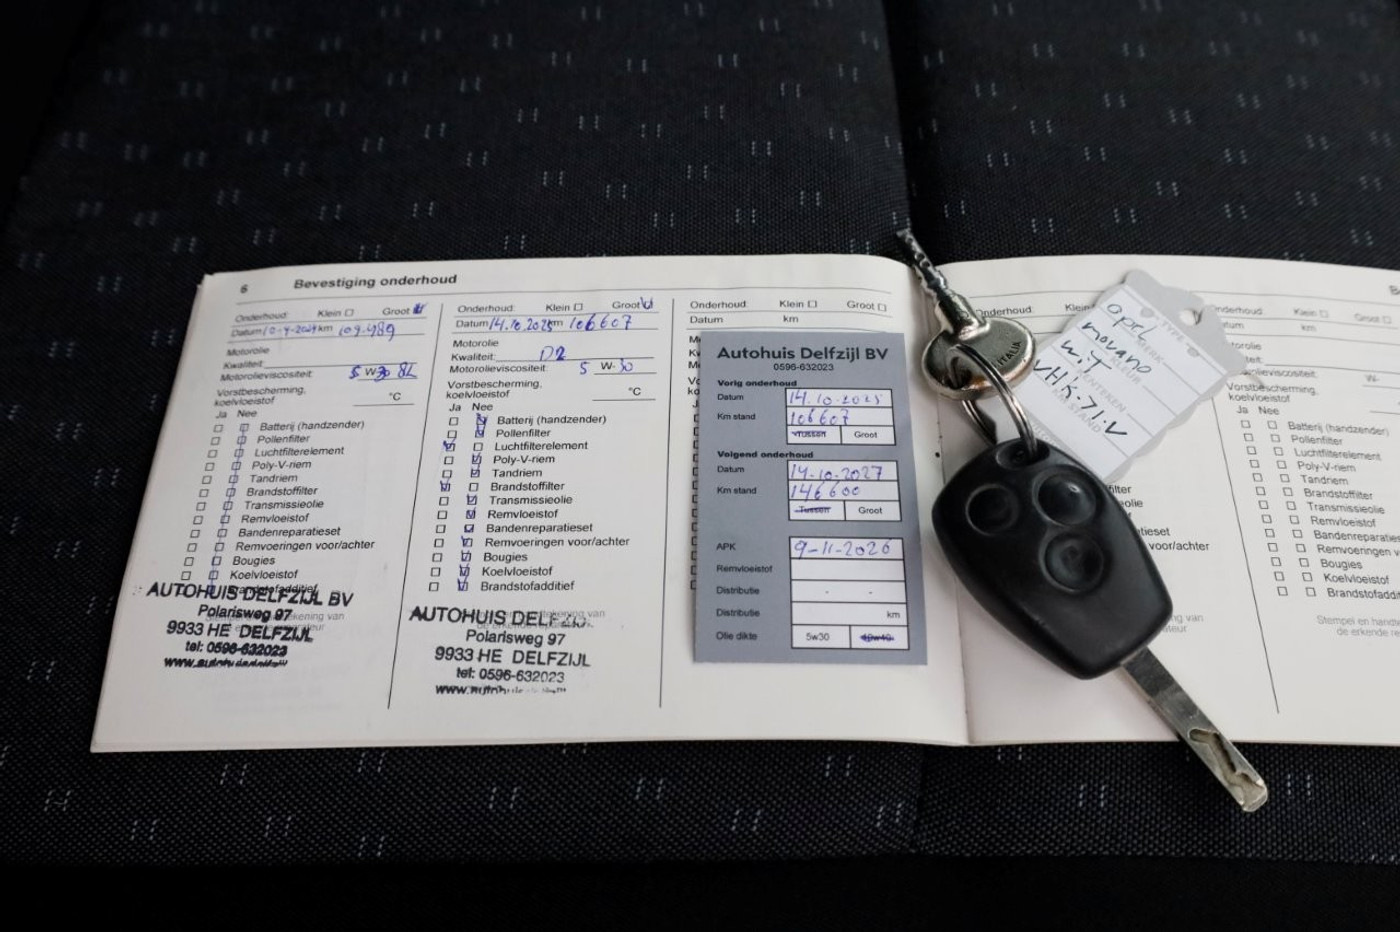 6 Bevestiging onderhoud
Onderhoud: Klein ☐ Groot
Datum km 109.489
Motorolie
Kwaliteit:
Motorolieviscositeit: 5 W-30 8L
Vorstbescherming,
koelvloeistof °C
Ja Nee
Batterij (handzender)
Pollenfilter
Luchtfilterelement
Poly-V-riem
Tandriem
Brandstoffilter
Transmissieolie
Remvloeistof
Bandenreparatieset
Remvoeringen voor/achter
Bougies
Koelvloeistof
Brandstofadditief
AUTOHUIS DELFZIJL BV
Polarisweg 97
9933 HE DELFZIJL
tel: 0596-632023
Onderhoud: Klein ☐ Groot
Datum 14.10.2025 km 106607
Motorolie
Kwaliteit: D2
Motorolieviscositeit: 5 W-30
Vorstbescherming,
koelvloeistof °C
Ja Nee
Batterij (handzender)
Pollenfilter
Luchtfilterelement
Poly-V-riem
Tandriem
Brandstoffilter
Transmissieolie
Remvloeistof
Bandenreparatieset
Remvoeringen voor/achter
Bougies
Koelvloeistof
Brandstofadditief
AUTOHUIS DELFZIJL
Polarisweg 97
9933 HE DELFZIJL
tel: 0596-632023
Onderhoud: Klein ☐ Groot ☐
Datum km
Autohuis Delfzijl BV
0596-632023
Vorig onderhoud
Datum 14.10.2025
Km stand 106607
Tussen Groot
Volgend onderhoud
Datum 14-10-2027
Km stand 146600
Tussen Groot
APK 9-11-2026
Remvloeistof
Distributie - -
Distributie km
Olie dikte 5w30 10w40
ITALIA
opel
movano
wit
VHK-71-V
KENTEKEN
KM STAND
Onderhoud: Klein
km
Onderhoud: Klein ☐ Groot ☐
Datum km
W-
Vorstbescherming,
koelvloeistof
Ja Nee
Batterij (handzender)
Pollenfilter
Luchtfilterelement
Poly-V-riem
Tandriem
Brandstoffilter
Transmissieolie
Remvloeistof
Bandenreparatieset
Remvoeringen
Bougies
Koelvloeistof
Brandstofadditief
Stempel en
de erkende